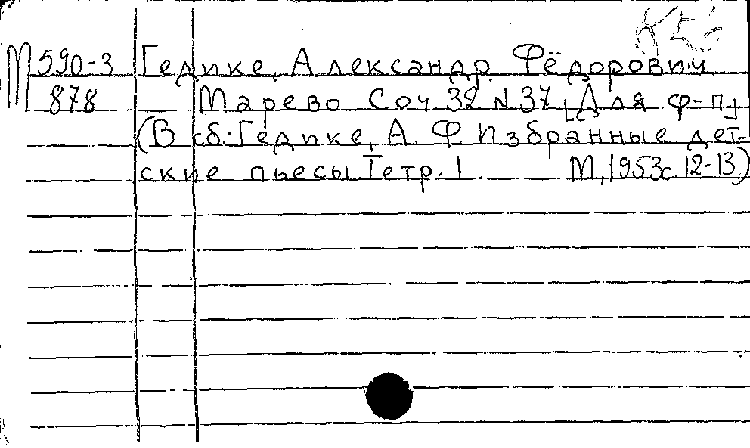 М 590-3 Гедике, Александр Фёдорович
878 Марево Соч. 32 № 37 [Для ф-п]
(В сб.: Гедике, А. Ф. Избранные дет-
ские пьесы Тетр. 1 М., 1953 с. 12-13)